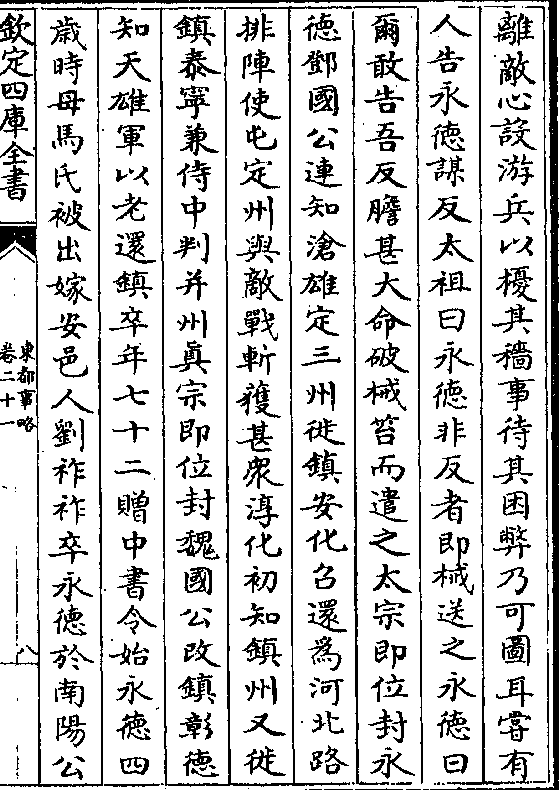 離敵心設游兵以擾其穡事待其困弊乃可圖耳嘗有
人告永徳謀反太祖曰永徳非反者即械送之永徳曰
爾敢告吾反膽甚大命破械笞而遣之太宗即位封永
徳鄧國公連知滄雄定三州徙鎮安化召還為河北路
排陣使屯定州與敵戰斬獲甚衆淳化初知鎮州又徙
鎮泰寧兼侍中判并州真宗即位封魏國公改鎮彰徳
知天雄軍以老還鎮卒年七十二贈中書令始永徳四
歳時母馬氏被出嫁安邑人劉祚祚卒永徳於南陽公
欽定四庫全書
東都事略
卷二十一
八